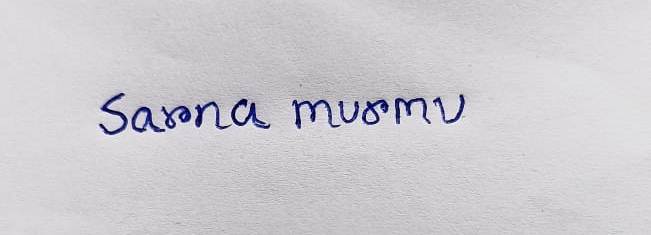 Sarna murmu